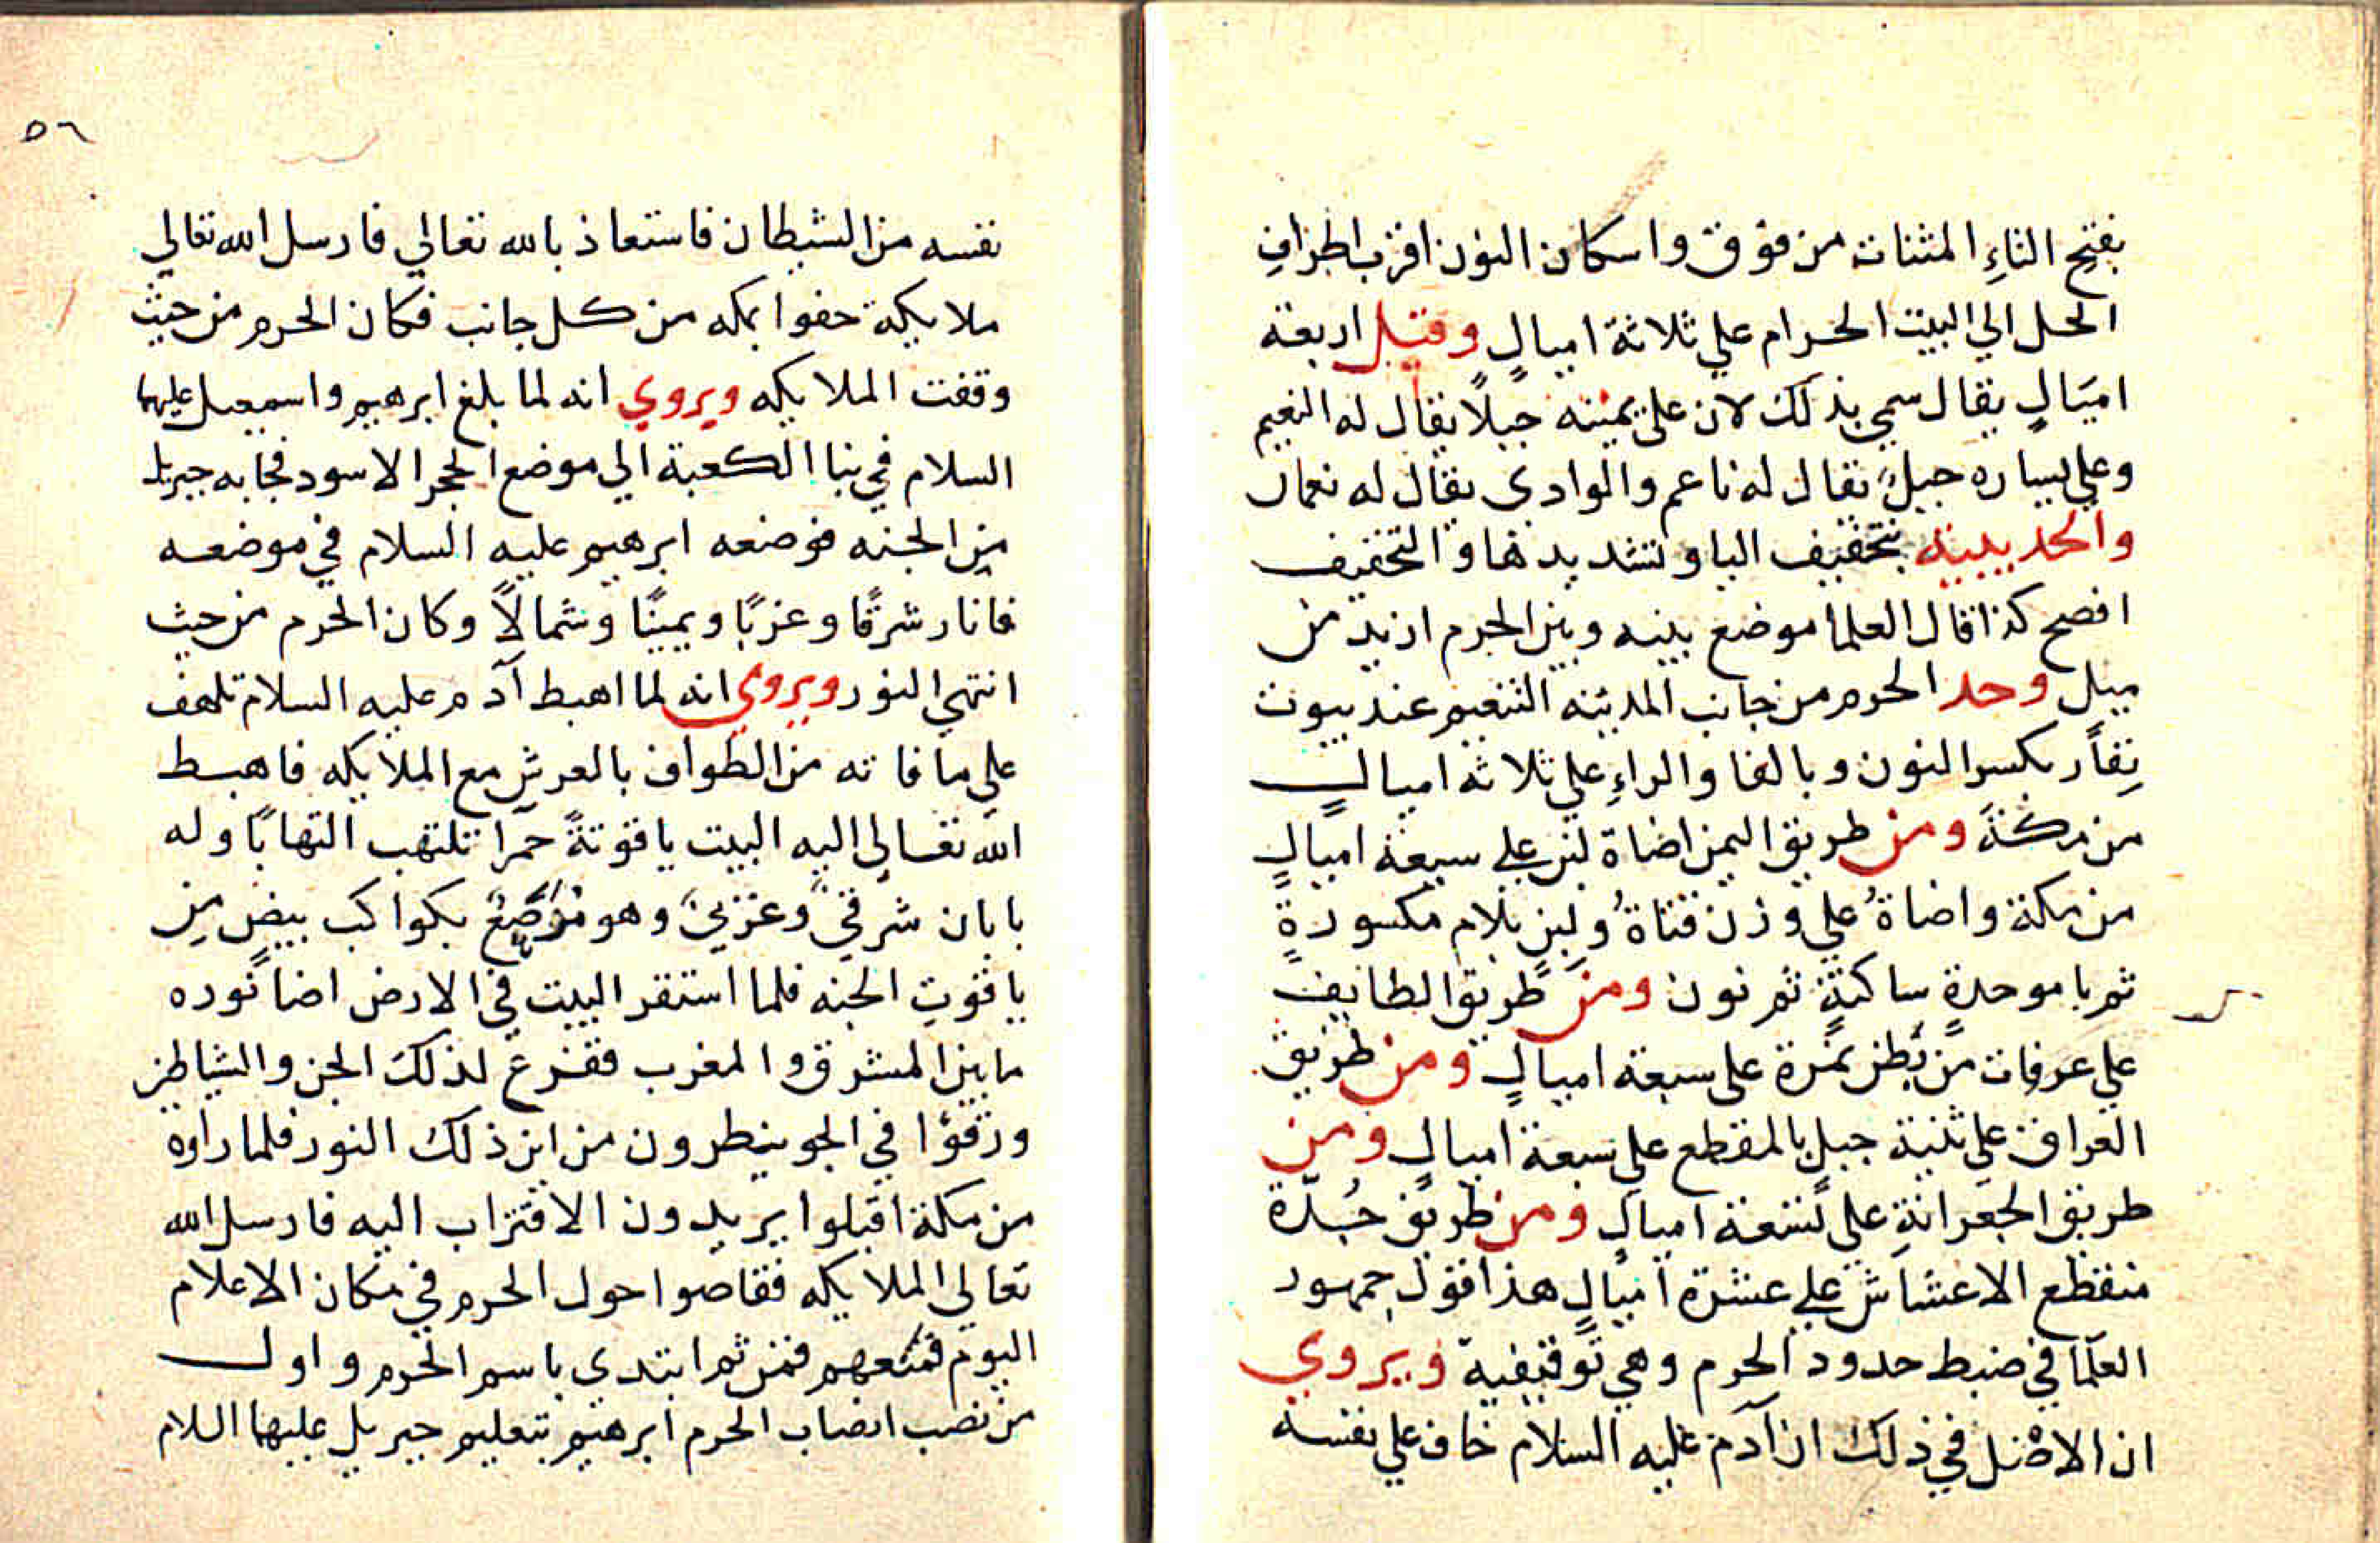 بفتح التاءِ المثنات من فوق واسكان النون اقرب اطراف
الحل الي البيت الحرام علي ثلاثة اميالٍ وقيل اربعة
اميَالٍ يقال سمي بذلك لان علي يمينه جبلاً يقال له النعيم
وعلي يساره جبلٌ يقال له ناعم والوادي يقال له نعمان
والحديبية بتخفيف اليا وتشديدها والتخفيف
افصح كذا قال العلما موضع بينه وبين الحرم ازيد من
ميل وحد الحرم من جانب المدينه التنعيم عند بيوت
نِفاَر بكسر النون وبالفا والراءِ علي ثلاثه اميالٍ
من مكةَ ومن طريق اليمن اضاة لبن علي سبعة اميالٍ
من مكة واضاةُ علي وزن قتاةُ ولبن بلام مكسورةٍ
ثم با موحدةٍ ساكنةٍ ثم نون ومن طريق الطايف
علي عرفات من بطن نمرة على سبعة اميالٍ ومن طريق
العراق علي ثنية جبلٍ بالمقطع علي سبعة اميالٍ ومن
طريق الجعرانةِ علي تسعة اميالٍ ومن طريق جُدَّة
منقطع الاعشاش علي عشرة اميالٍ هذا قول جمهور
العلما في ضبط حدود الحرم وهي توقيفية ويروي
ان الاصْل في ذلك ان آدم عليه السلام خاف علي نفسه
٥٦
نفسه من الشيطان فاستعاذ بالله تعالي فارسل الله تعالي
ملايكة حفوا بمكه من كل جانب فكان الحرم من حيث
وقفت الملايكه ويروي انه لما بلغ ابرهيم واسمعيل عليهما
السلام في بنا الكعبة الي موضع الحجر الاسود فجا به جبريل
من الجنه فوضعه ابرهيم عليه السلام في موضعه
فانار شرقًا وغربًا ويمينًا وشمالاً وكان الحرم من حيث
انتهي النور ويروي انه لما اهبط آدم عليه السلام تلهف
علي ما فاته من الطواف بالعرش مع الملايكه فاهبط
الله تعالي اليه البيت ياقوتةً حمرا تلتهب التهابًا وله
بابان شرقيٌ وغربيٌ وهو مُرَصَّعٌ بكواكب بيضٍ من
ياقوتِ الجنه فلما استقر البيت في الارض اضا نوره
ما بين المشرق والمغرب ففزع لذلك الجن والشياطين
ورقوا في الجو ينظرون من اين ذلك النور فلما راوه
من مكة اقبلوا يريدون الاقتراب اليه فارسل الله
تعالي الملايكه فقاموا حول الحرم في مكان الاعلام
اليوم فمنعهم فمن ثم ابتدي باسم الحرم واول
من نصب انصاب الحرم ابرهيم بتعليم جبريل عليهما السلام